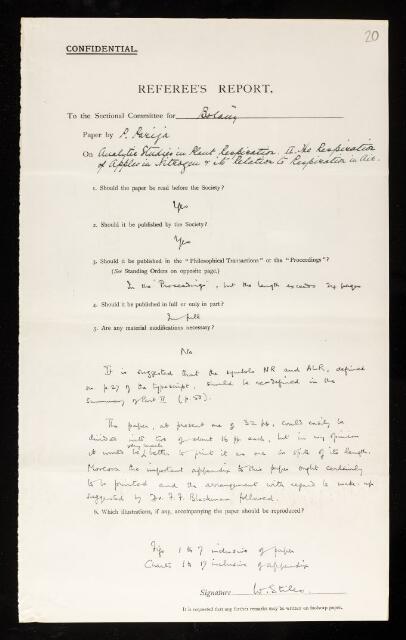 20
CONFIDENTIAL.
REFEREE'S REPORT.
To the Sectional Committee for Botany
Paper by P. Parija
On Analytic Studies in Plant Respiration. II. The Respiration
of Apples in Nitrogen & its Relation to Respiration in Air.
1. Should the paper be read before the Society?
Yes
2. Should it be published by the Society?
Yes
3. Should it be published in the "Philosophical Transactions" or the "Proceedings"?
(See Standing Orders on opposite page.)
In the "Proceedings", but the length exceeds pages
4. Should it be published in full or only in part?
In full
5. Are any material modifications necessary?
No
It is suggested that the symbols NR and defined
on p 27 of the typescript, should be redefined in the
summary of Part II
The paper, at present one of 32 pp, could easily be
divided into two of about 16 pp each, but in my opinion
it would be very much better to print it as one in spite of its length.
Moreover the important appendix to this paper ought certainly
to be printed and the arrangement with regard to make-up
suggested by Dr. F. F. Blackman followed.
6. Which illustrations, if any, accompanying the paper should be reproduced?
Figs 1 to 7 inclusive of paper
Charts 1 to 17 inclusive of appendix
Signature W. Stiles.
It is requested that any further remarks may be written on foolscap paper.